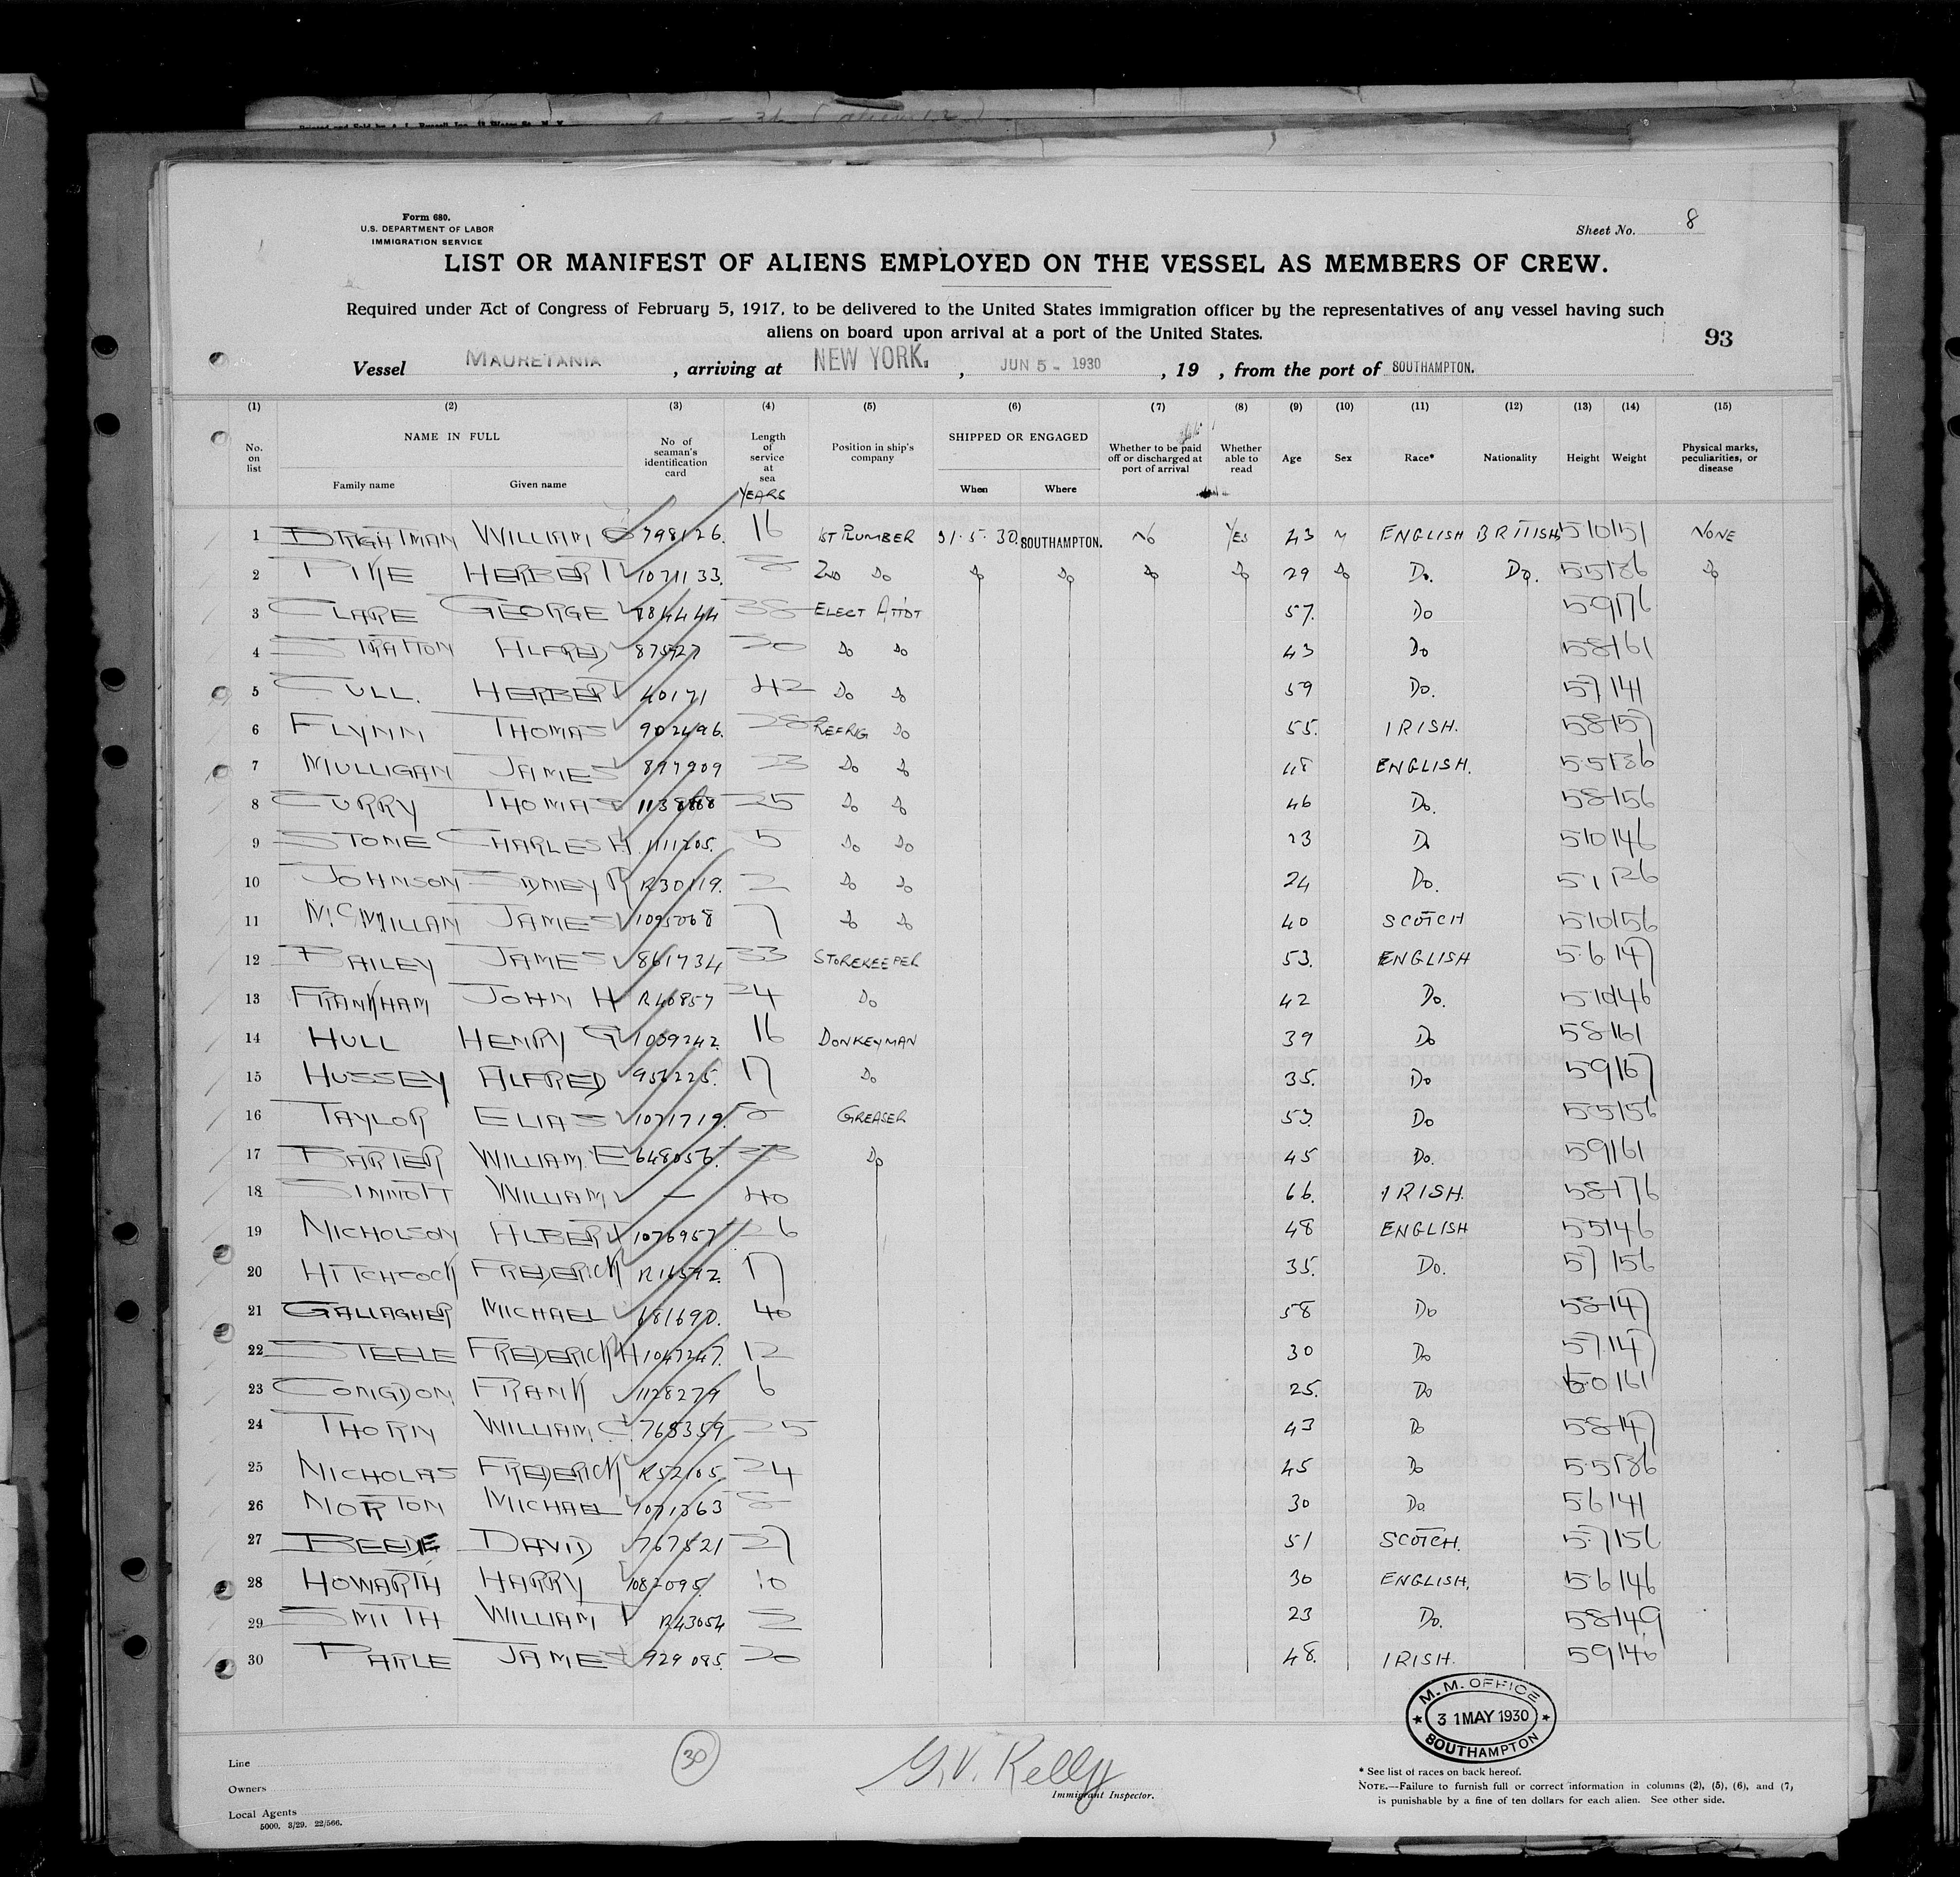 Form 680.
U.S. DEPARTMENT OF LABOR
IMMIGRATION SERVICE
Sheet No. 8
LIST OR MANIFEST OF ALIENS EMPLOYED ON THE VESSEL AS MEMBERS OF CREW.
Required under Act of Congress of February 5, 1917, to be delivered to the United States immigration officer by the representatives of any vessel having such
aliens on board upon arrival at a port of the United States.
93
Vessel MAURETANIA, arriving at NEW YORK., JUN 5 - 1930, 19 , from the port of SOUTHAMPTON.
(1) (2) (3) (4) (5) (6) (7) (8) (9) (10) (11) (12) (13) (14) (15)
No. on list NAME IN FULL Family name Given name No of seaman's identification card Length of service at sea YEARS Position in ship's company SHIPPED OR ENGAGED When Where Whether to be paid off or discharged at port of arrival Whether able to read Age Sex Race* Nationality Height Weight Physical marks, peculiarities, or disease
1 BRIGHTMAN WILLIAM 798126. 16 1ST PLUMBER 31.5.30. SOUTHAMPTON. No YES 43 M ENGLISH BRITISH 5 10 151 NONE
2 PIKE HERBERT 1071133. 8 2ND Do Do Do Do Do 29 Do Do. Do. 5 5 136 Do
3 CLARE GEORGE 784444 38 ELECT ATTDT 57. Do 5 9 176
4 STRATTON ALFRED 30 Do Do 43 Do 5 8 161
5 CULL. HERBERT 40171 42 Do Do 59 Do. 5 7 141
6 FLYNN THOMAS 902496. 28 REFRIG Do 55. IRISH. 5 8 157
7 MULLIGAN JAMES 897909 Do Do 48 ENGLISH. 5.5 136
8 CURRY THOMAS 25 Do Do 46 Do. 5 8 156
9 STONE CHARLES H 1111205. 5 Do Do 23 Do 5 10 146
10 JOHNSON SIDNEY R R30119. 2 Do Do 24 Do. 5 1 126
11 McMILLAN JAMES 1095068 7 Do Do 40 SCOTCH 5 10 156
12 BAILEY JAMES 861734 33 STOREKEEPER 53. ENGLISH 5.6. 147
13 FRANKHAM JOHN H R40857 24 Do 42 Do. 5 10 146
14 HULL HENRY G 1039242. 16 DONKEYMAN 39 Do 5 8 161
15 HUSSEY ALFRED 956225. 17 Do 35. Do 5 9 167
16 TAYLOR ELIAS 1071719. GREASER 53. Do 5 5 156
17 BARTER WILLIAM. E 648056. 33 Do 45 Do. 5 9 161
18 SINNOTT WILLIAM — 40 66. IRISH. 5 8 176
19 NICHOLSON ALBERT 1076957 26 48 ENGLISH 5 5 146
20 HITCHCOCK FREDERICK R16592. 17 35. Do. 5 7 156
21 GALLAGHER MICHAEL 681690. 40 58 Do 5 8 147
22 STEELE FREDERICK H 1047247. 12 30 Do 5 7 147
23 CONGDON FRANK 1128279 6 25. Do 6.0 161
24 THORN WILLIAM. C 768359 25 43 Do 5 8 147
25 NICHOLAS FREDERICK R52105 24 45 Do 5.5 136
26 NORTON MICHAEL 1071363 8 30 Do. 5 6 141
27 BEEDE DAVID 767521 27 51 SCOTCH. 5.7 156
28 HOWARTH HARRY 1082095 10 30 ENGLISH. 5 6 146
29 SMITH WILLIAM R43054 2 23 Do. 5 8 149
30 PARLE JAMES 929085. 20 48. IRISH. 5 9 146
M. M. OFFICE
31 MAY 1930
SOUTHAMPTON
30
G. V. Kelly
Immigrant Inspector.
Line
Owners
Local Agents
5000. 3/29. 22/566.
* See list of races on back hereof.
NOTE.—Failure to furnish full or correct information in columns (2), (5), (6), and (7,
is punishable by a fine of ten dollars for each alien. See other side.